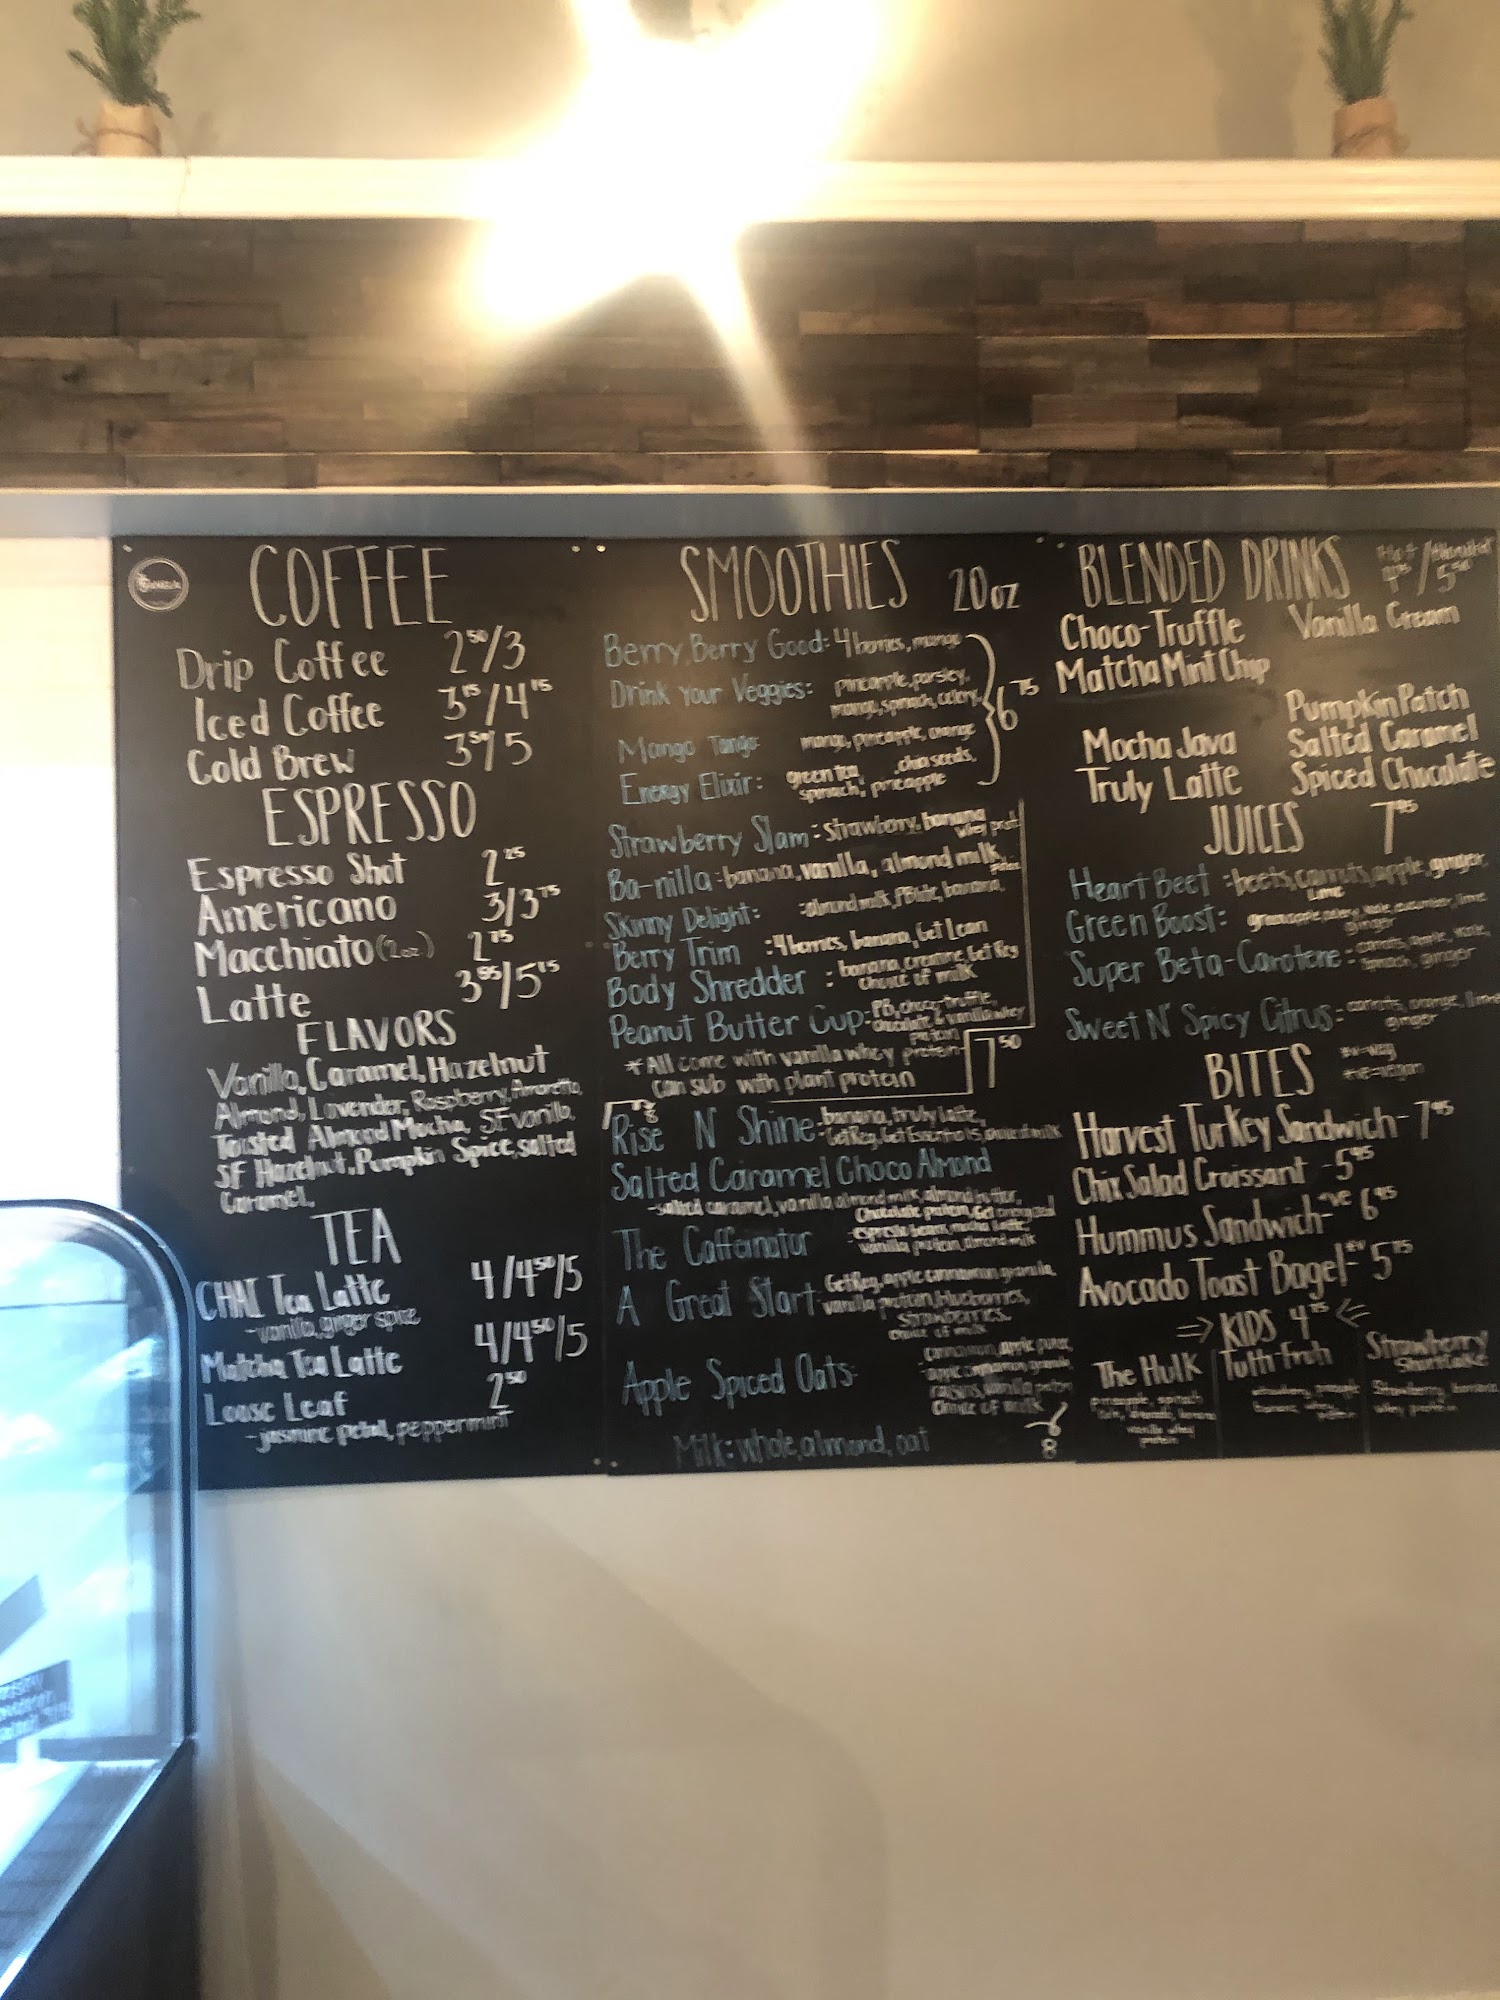 COFFEE
Drip Coffee 2⁵⁰/3
Iced Coffee 3¹⁵/4¹⁵
Cold Brew 3⁵⁰/5
ESPRESSO
Espresso Shot 2²⁵
Americano 3/3⁷⁵
Macchiato (2oz) 2⁷⁵
Latte 3⁹⁵/5¹⁵
FLAVORS
Vanilla, Caramel, Hazelnut
Almond, Lavender, Raspberry, Amaretto,
Toasted Almond Mocha, SF vanilla,
SF Hazelnut, Pumpkin Spice, salted
Caramel,
TEA
CHAI Tea Latte 4/4⁵⁰/5
-vanilla, ginger spice
Matcha Tea Latte 4/4⁵⁰/5
Loose Leaf 2⁵⁰
-jasmine petal, peppermint
SMOOTHIES 20oz
Berry, Berry Good: 4 berries, mango
Drink Your Veggies: pineapple, parsley,
mango, spinach, celery
6⁷⁵
Mango Tango: mango, pineapple, orange
Energy Elixir: green tea, chia seeds,
spinach, pineapple
Strawberry Slam: strawberry, banana
Ba-nilla: banana, vanilla, almond milk
Skinny Delight: almond milk, banana,
Berry Trim: 4 berries, banana, Get Lean
Body Shredder: banana, creatine, Get Reg
choice of milk
Peanut Butter Cup: PB, choco-truffle,
chocolate & vanilla whey
protein
*All come with vanilla whey protein
can sub with plant protein
7⁵⁰
8
Rise N' Shine: banana, truly latte,
Get Reg, Get Essentials, almond milk
Salted Caramel Choco Almond
-salted caramel, vanilla almond milk, almond butter,
Chocolate protein, Get energized
The Caffeinator espresso beans, mocha latte,
vanilla protein, almond milk
A Great Start: Get Reg, apple cinnamon granola,
vanilla protein, blueberries,
strawberries,
choice of milk
Apple Spiced Oats- cinnamon, apple
apple cinnamon granola
raisins, vanilla protein
choice of milk
8
Milk: whole, almond, oat
BLENDED DRINKS Hot/Blended
4⁹⁵/5⁵⁰
Choco-Truffle Vanilla Cream
Matcha Mint Chip
Pumpkin Patch
Mocha Java Salted Caramel
Truly Latte Spiced Chocolate
JUICES 7⁹⁵
Heart Beet: beets, carrots, apple, ginger,
Lime
Green Boost: green apple, celery, kale, cucumber, lime
ginger
Super Beta-Carotene: carrots, apple, kale,
spinach, ginger
Sweet N' Spicy Citrus: carrots, orange, lime
ginger
BITES *v=veg
*ve=vegan
Harvest Turkey Sandwich- 7⁹⁵
Chix Salad Croissant - 5⁹⁵
Hummus Sandwich-*ve 6⁹⁵
Avocado Toast Bagel-*v 5⁷⁵
⇒ KIDS 4⁷⁵ ⇐
The Hulk
pineapple, spinach
vanilla whey
protein
Tutti-Fruti
Strawberry
Shortcake
Strawberry, banana
whey protein